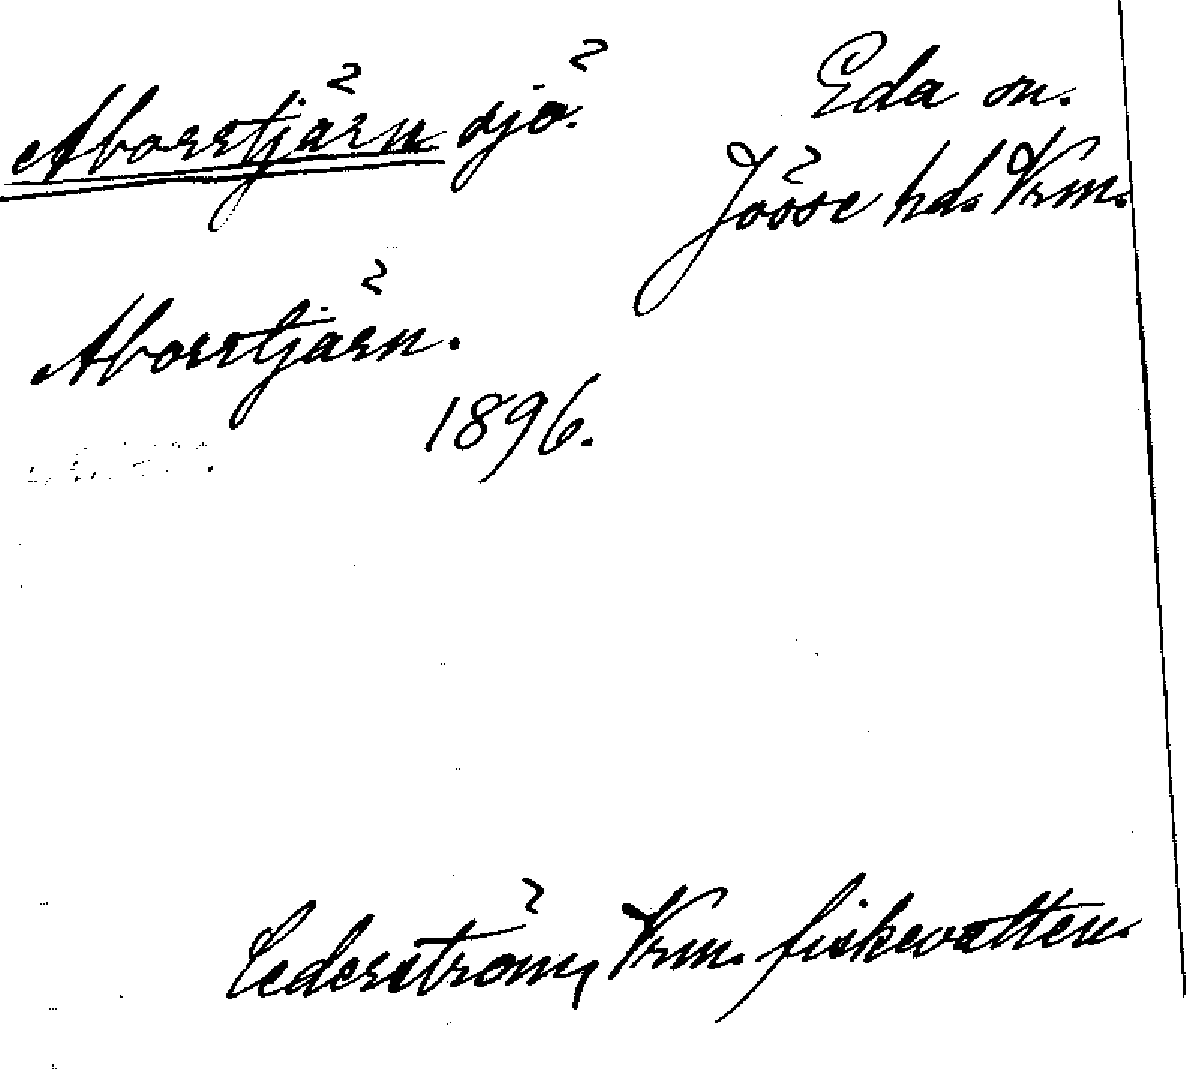 Aborrtjärn sjö. Eda sn.
Jösse hd. Vrm.
Aborrtjärn.
1896.
Cederström, Vrm. fiskevatten.